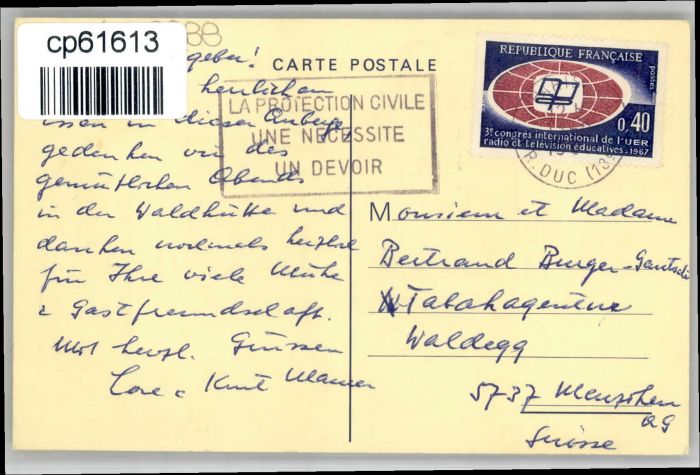 cp61613
CARTE POSTALE
RÉPUBLIQUE FRANÇAISE
postes
0,40
3e congrès international de l'UER
radio et télévision éducatives. 1967
R. DUC
LA PROTECTION CIVILE
UNE NECESSITE
UN DEVOIR
herrlichen
in dieser
gedenken wir des
gemütlichen Abends
in der Waldhütte und
danken nochmals herzlich
für Ihre viele Mühe
& Gastfreundschaft.
Mit herzl. Grüssen
Lore & Kurt
Monsieur et Madame
Bertrand Burger-Gautschi
Tabakagentur
Waldegg
5737 Menziken
AG
Suisse